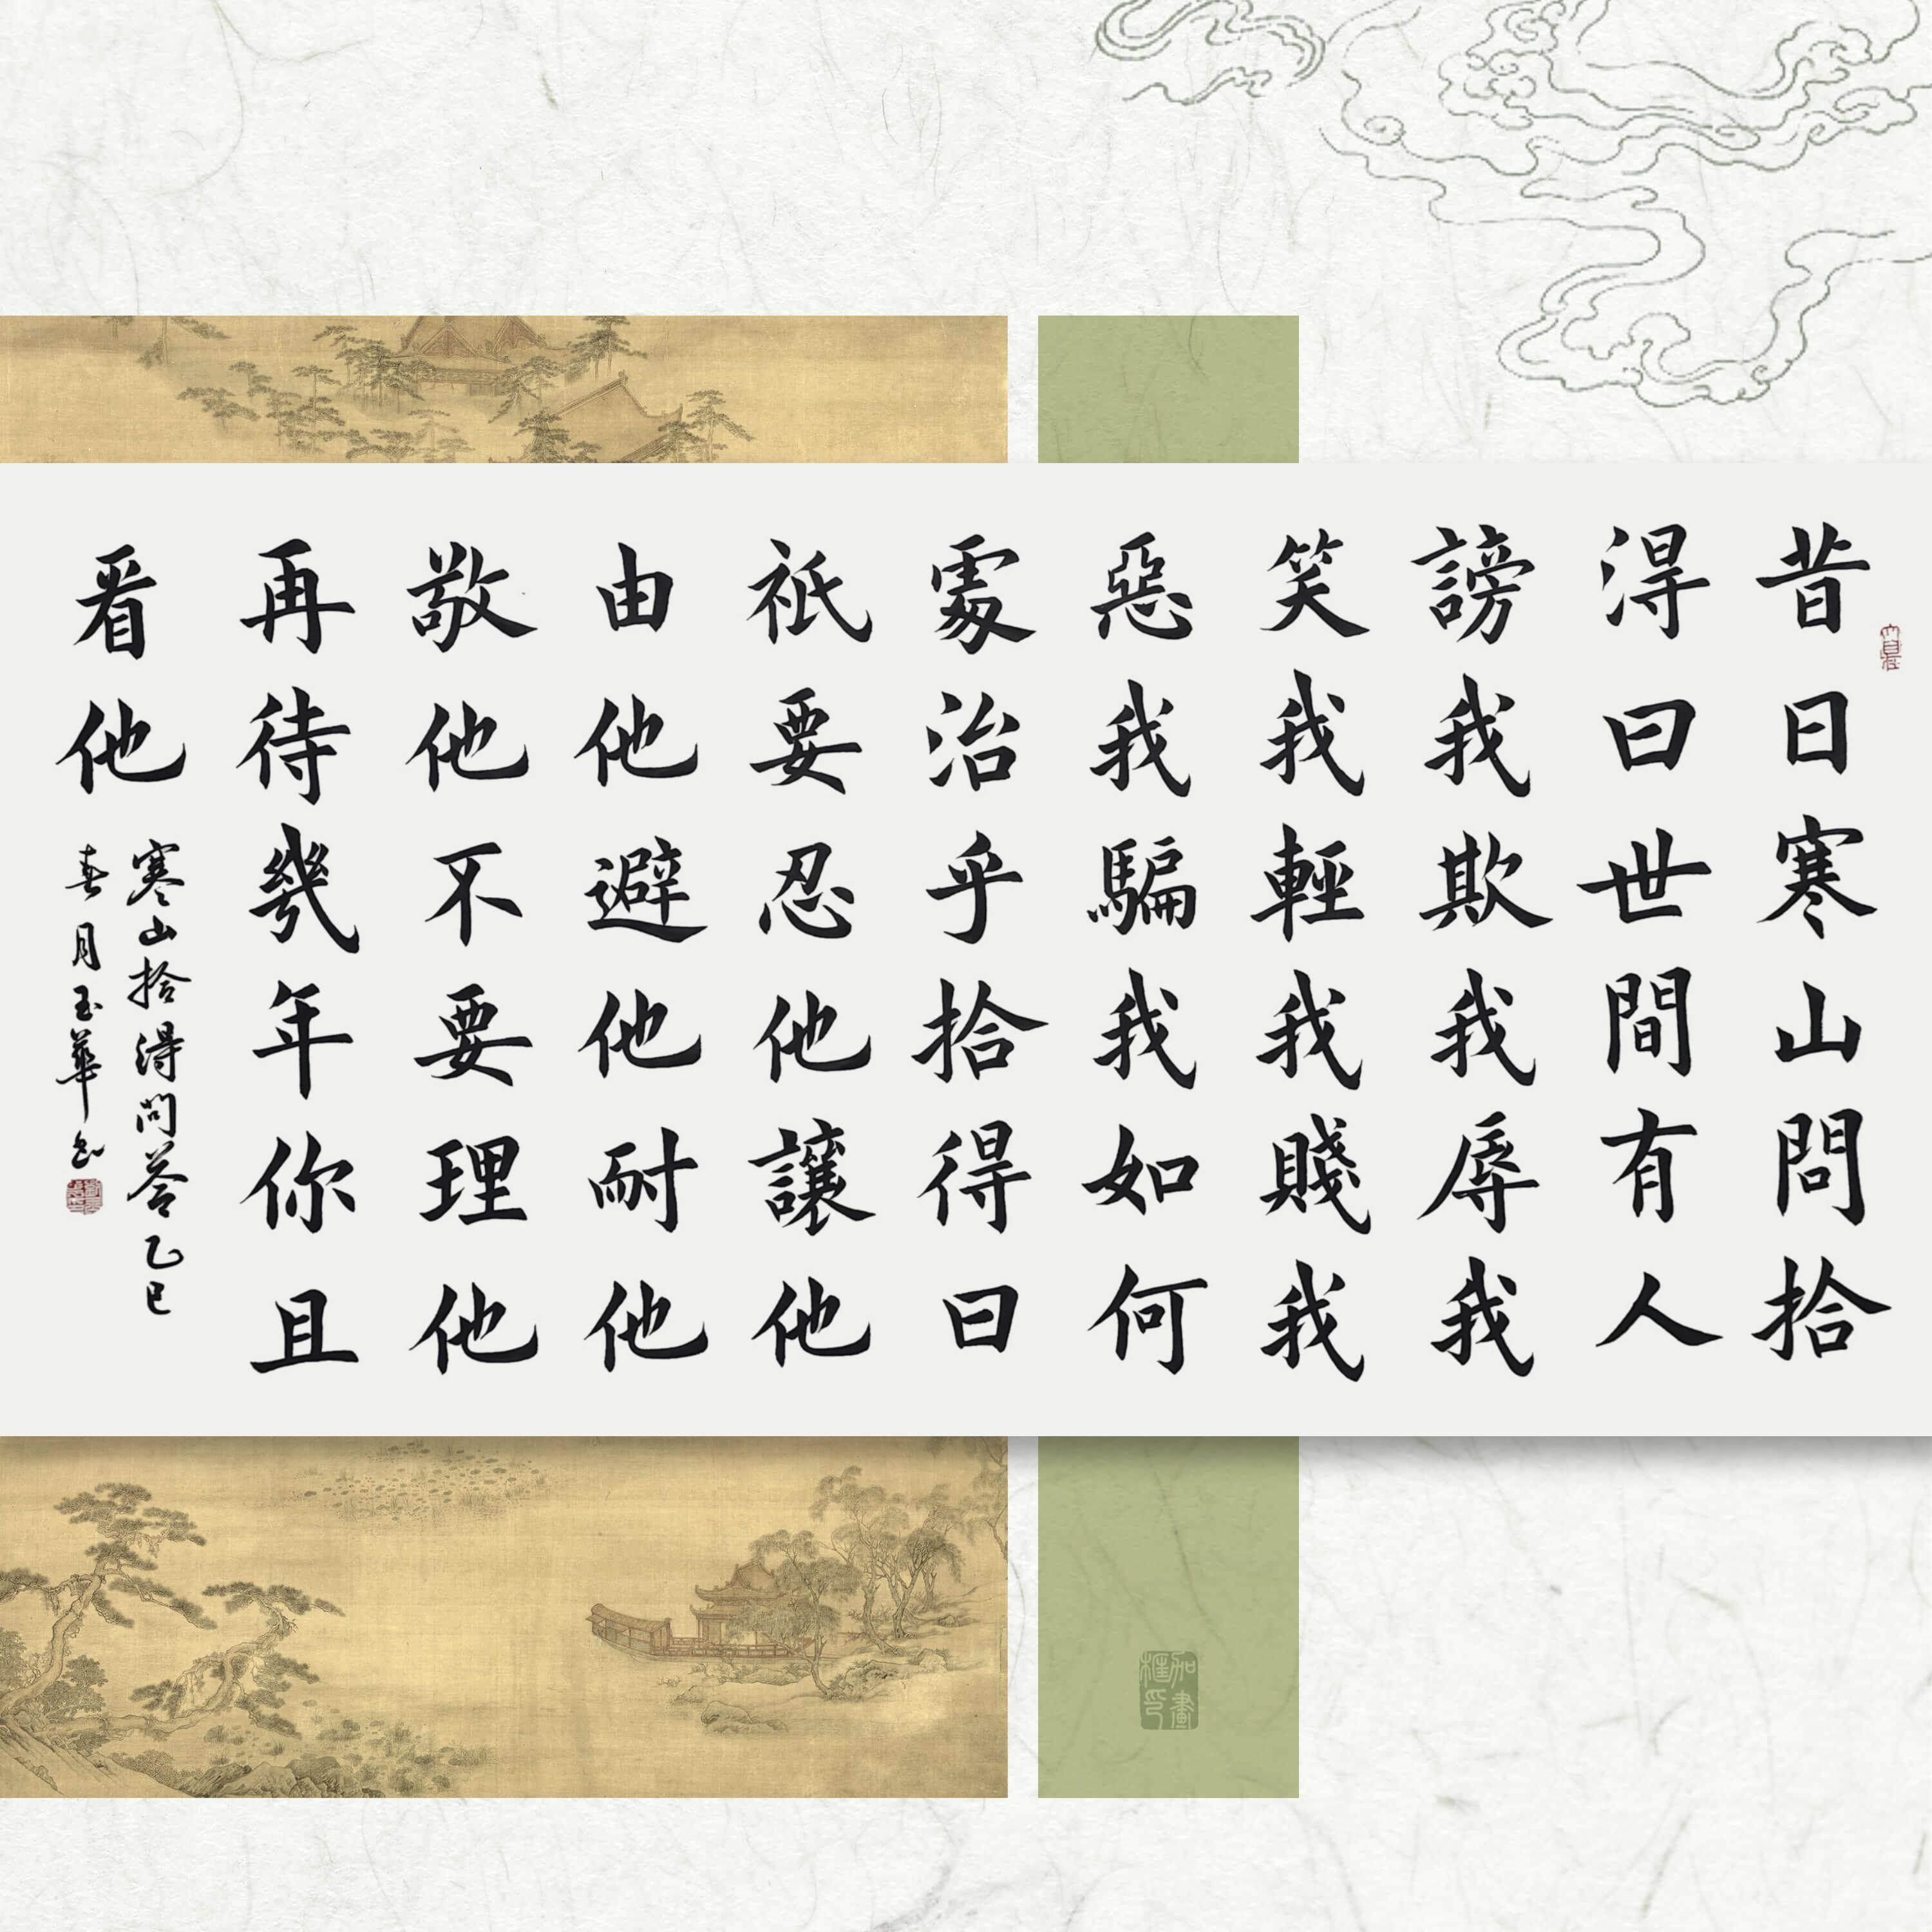 昔日寒山問拾
淂曰世間有人
謗我欺我辱我
笑我輕我賤我
惡我騙我如何
處治乎拾得曰
祇要忍他讓他
由他避他耐他
敬他不要理他
再待幾年你且
看他
寒山拾淂問答乙巳
春月玉華书
加畫框印